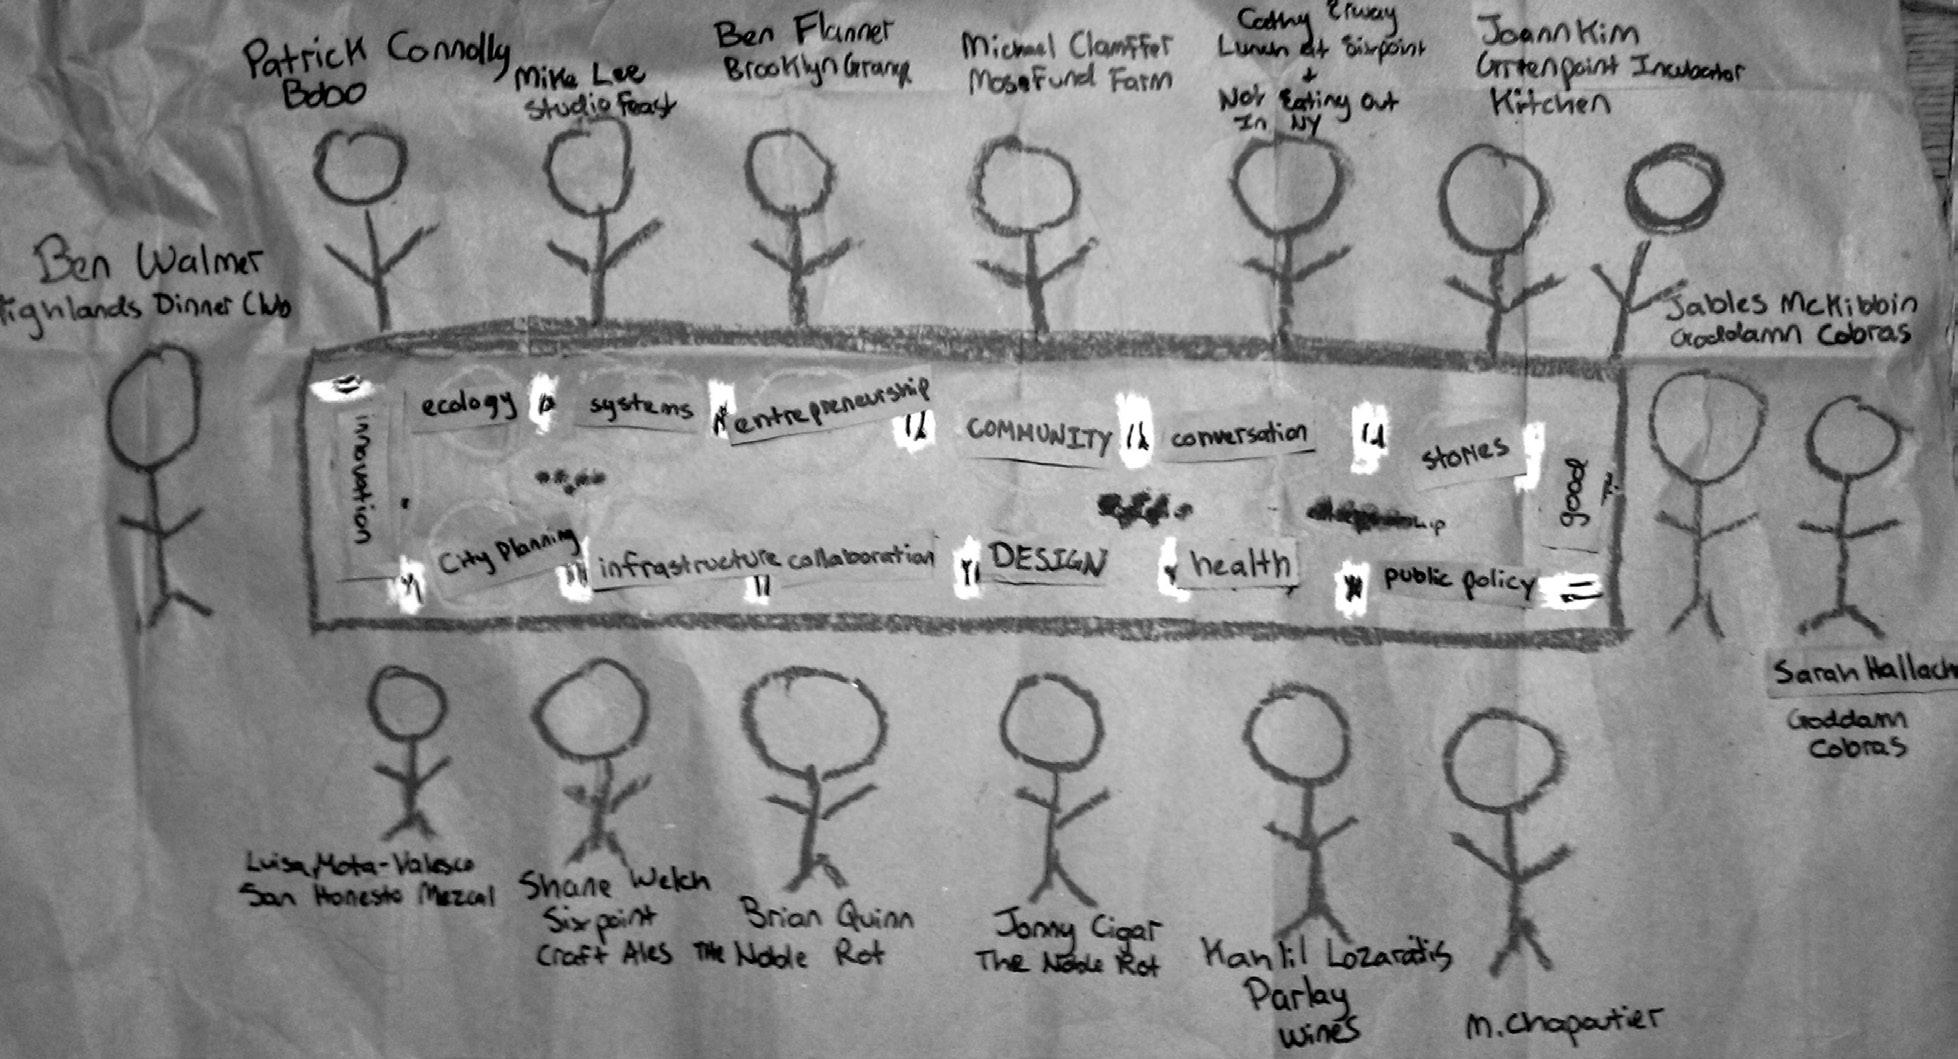 Patrick Connolly
Bobo
Mike Lee
Studio Feast
Ben Flanner
Brooklyn Grange
Michael Clampffer
Mosefund Farm
Cathy Erway
Lunch at Sixpoint
+
Not Eating Out
In NY
Joann Kim
Greenpoint Incubator
Kitchen
Ben Walmer
Highlands Dinner Club
Jables McKibbin
Goddamn Cobras
innovation
ecology
systems
entrepreneurship
COMMUNITY
conversation
stories
good
City Planning
infrastructure
collaboration
DESIGN
health
public policy
Sarah Hallach
Goddamn
Cobras
Luisa Mota-Valesco
San Honesto Mezcal
Shane Welch
Sixpoint
Craft Ales
Brian Quinn
The Noble Rot
Jonny Cigar
The Noble Rot
Lozaratis
Parlay
Wines
M. Chapoutier